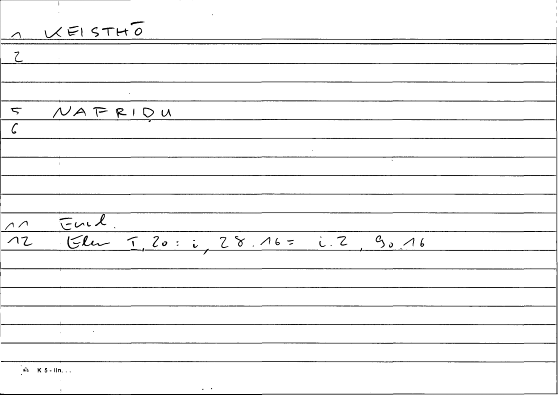 1 KEISTHŌ
2
5 NAFRIḌU
6
11 Eucl.
12 Elem I, 20 : i, 28.16 = i.2, 90.16
K 5 - lin...